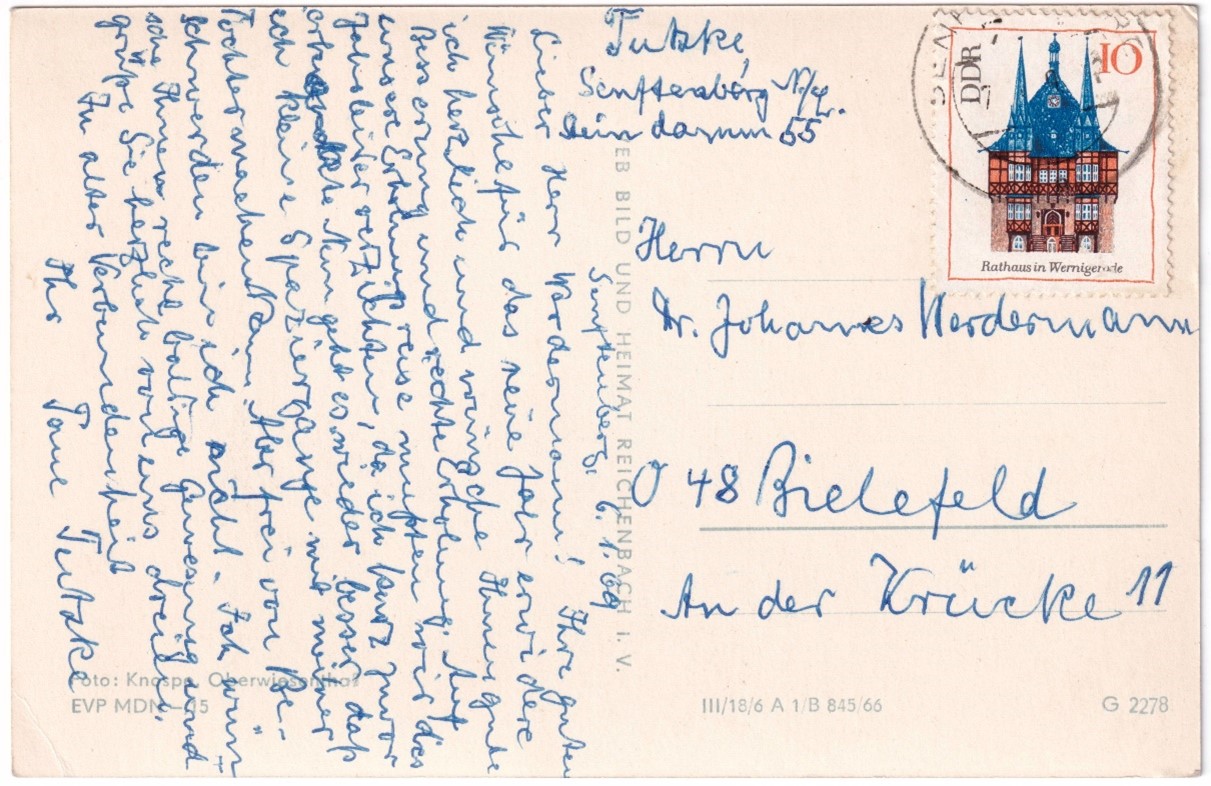 Tutzke,
Senftenberg N/L.
Steindamm 55
DDR
10
Rathaus in Wernigerode
Senftenberg, 6.1.69
Lieber Herr Werdermann! Ihre guten
Wünsche für das neue Jahr erwidere
ich herzlich und wünsche Ihnen gute
Besserung und rechte Erholung. Auf
unsere Erholungsreise mußten wir dies
Jahr leider verzichten, da ich kurz zuvor
erkrankte. Nun geht es wieder besser, daß
ich kleine Spaziergänge mit meiner
Tochter machen kann. Aber frei von Be-
schwerden bin ich nicht. Ich wün-
sche Ihnen recht baldige Genesung und
grüße Sie herzlich von uns dreien.
In alter Verbundenheit
Ihr Tutzke
VEB BILD UND HEIMAT REICHENBACH I. V.
Herrn
Dr. Johannes Werdermann
48 Bielefeld
An der Krücke 11
Foto: Knospe, Oberwiesenthal
EVP MDN –.15
III/18/6 A 1/B 845/66
G 2278